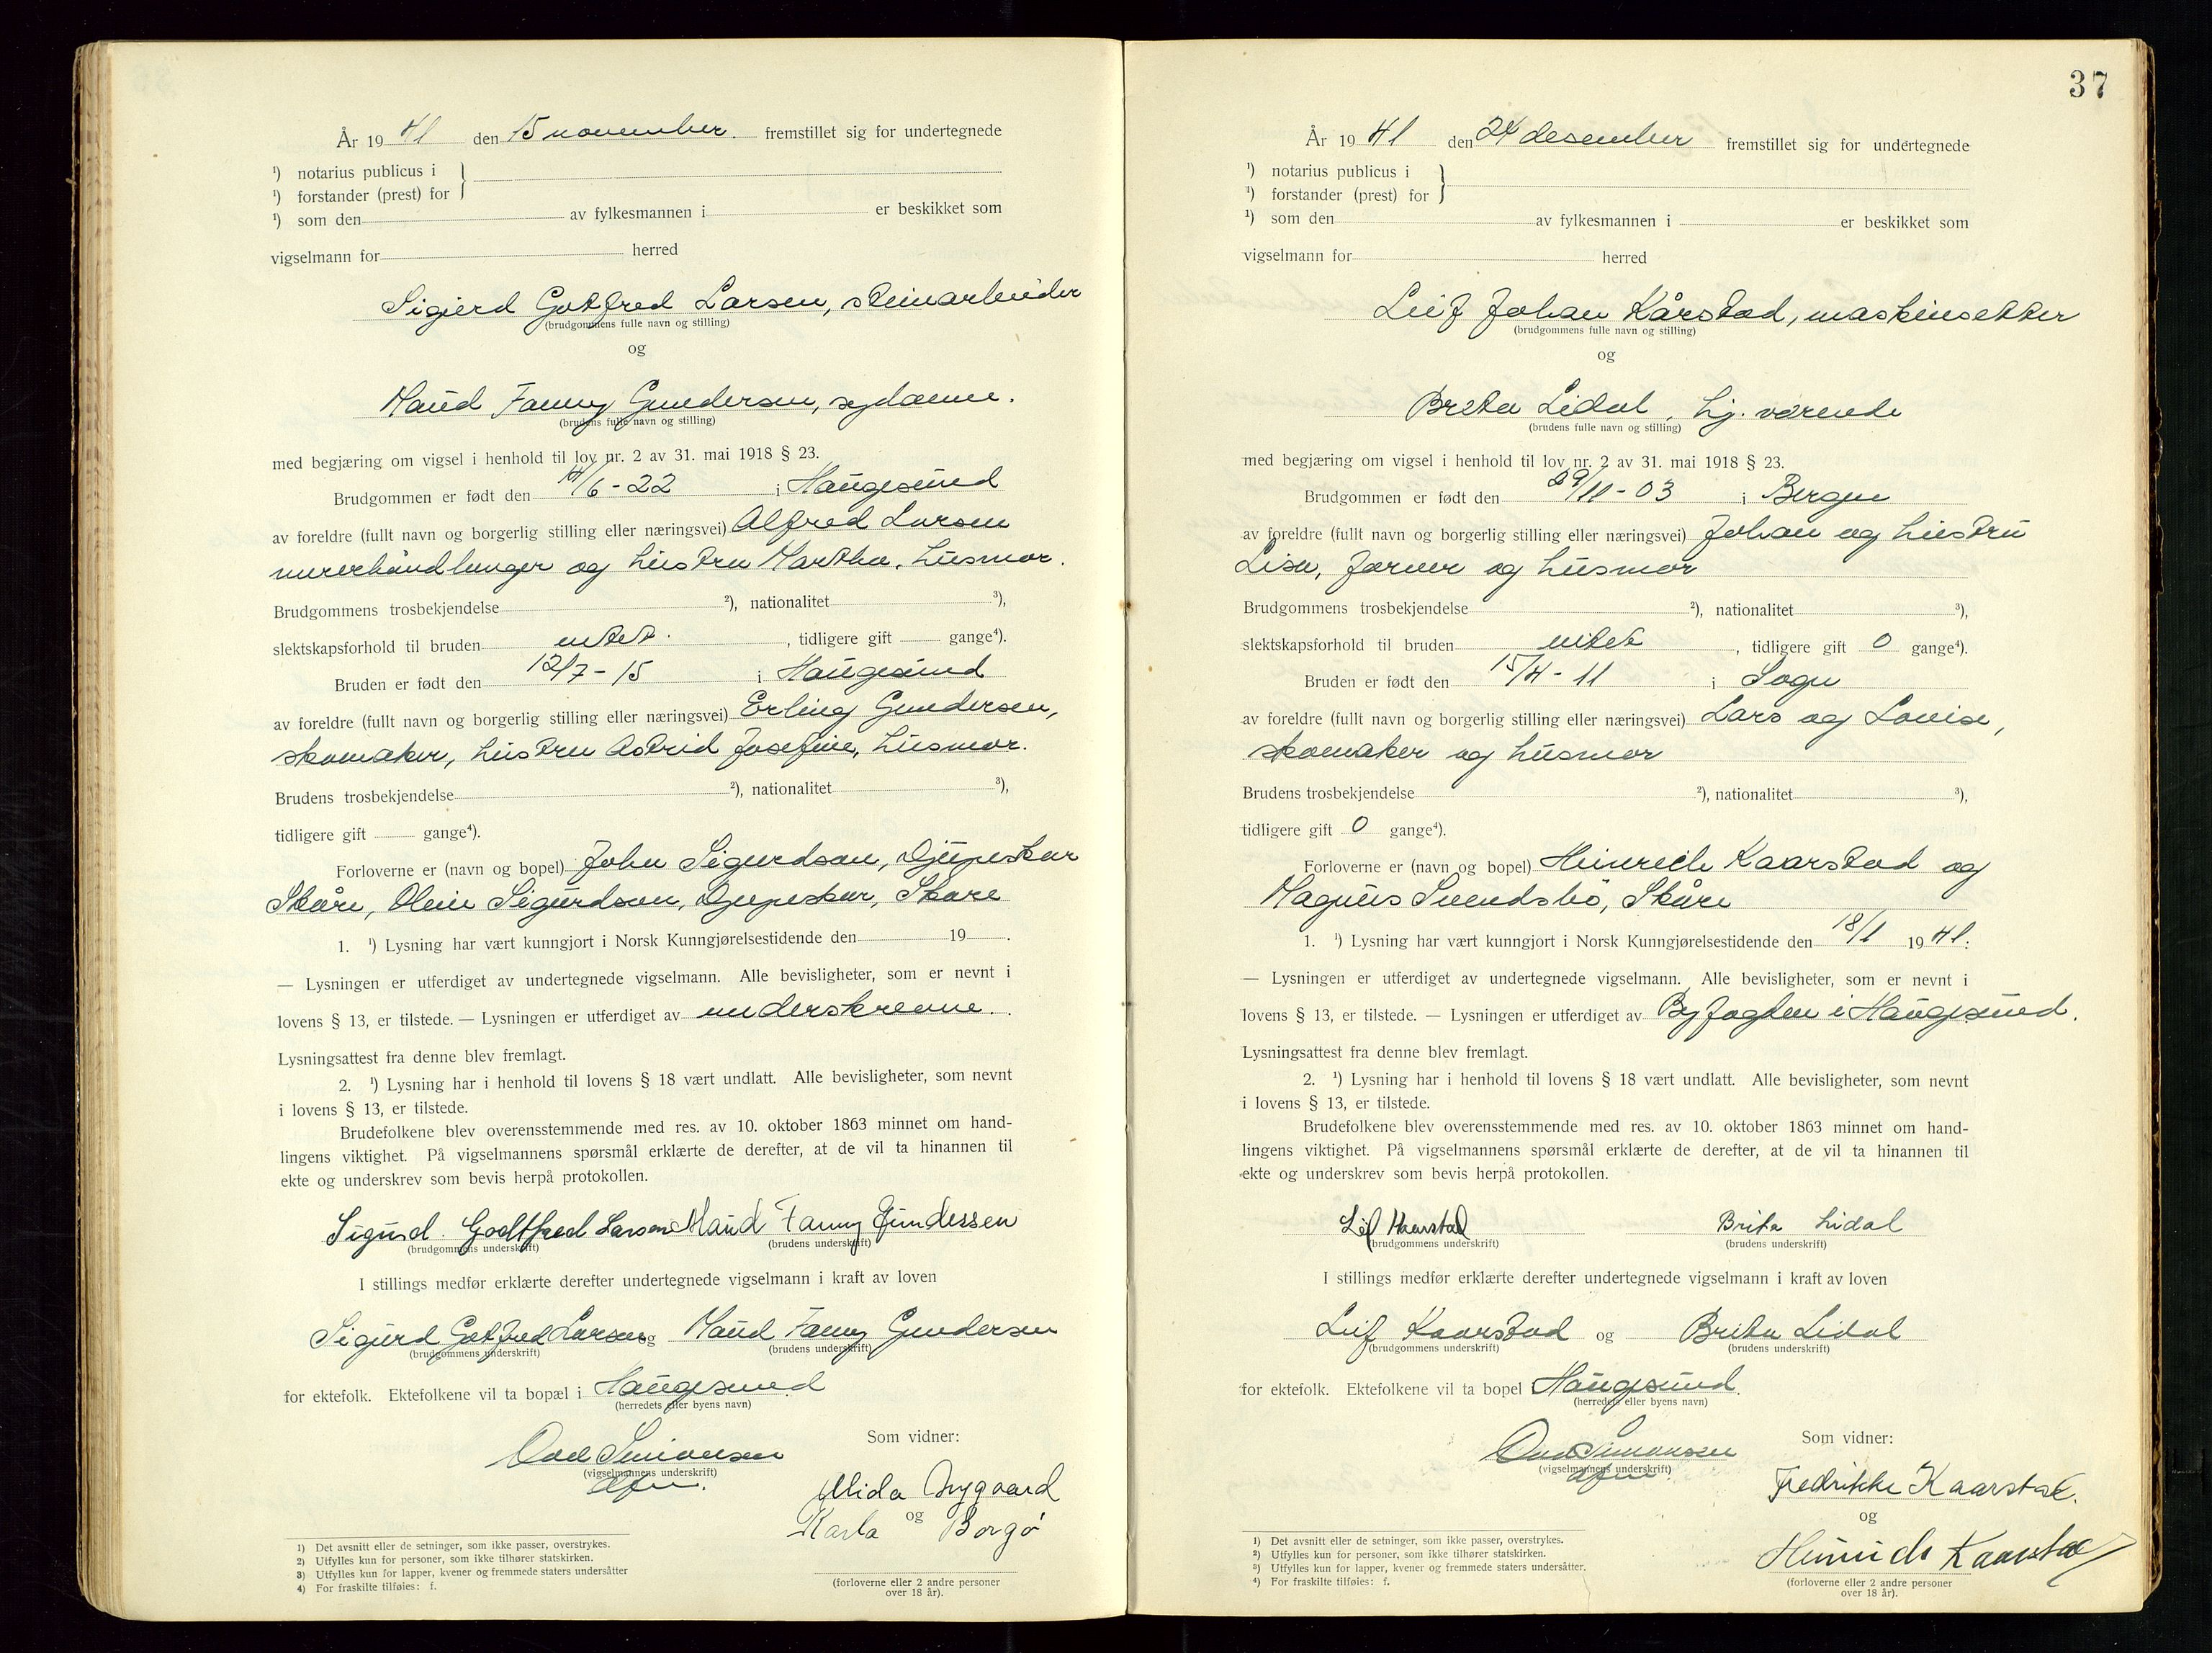 År 19 41 den 15 november. fremstillet sig for undertegnede
¹) notarius publicus i
¹) forstander (prest) for
¹) som den av fylkesmannen i er beskikket som
vigselmann for herred
Sigurd Gotfred Larsen, steinarbeider
(brudgommens fulle navn og stilling)
og
Maud Fanny Gundersen, sydame.
(brudens fulle navn og stilling)
med begjæring om vigsel i henhold til lov nr. 2 av 31. mai 1918 § 23.
Brudgommen er født den /6-22 i Haugesund
av foreldre (fullt navn og borgerlig stilling eller næringsvei) Alfred Larsen
murerhåndlanger og hustru Martha, husmor.
Brudgommens trosbekjendelse ²), nationalitet ³),
slektskapsforhold til bruden intet. , tidligere gift gange⁴).
Bruden er født den 12/7-15 i Haugesund
av foreldre (fullt navn og borgerlig stilling eller næringsvei) Erling Gundersen,
skomaker, hustru Astrid Josefine, husmor.
Brudens trosbekjendelse ²), nationalitet ³),
tidligere gift gange⁴).
Forloverne er (navn og bopel) John Sigurdson, Djupeskar
Skåre, Sigurdson, Djupeskar, Skare
1. ¹) Lysning har vært kunngjort i Norsk Kunngjørelsestidende den 19 .
— Lysningen er utferdiget av undertegnede vigselmann. Alle bevisligheter, som er nevnt i
lovens § 13, er tilstede. — Lysningen er utferdiget av underskrevne.
Lysningsattest fra denne blev fremlagt.
2. ¹) Lysning har i henhold til lovens § 18 vært undlatt. Alle bevisligheter, som nevnt
i lovens § 13, er tilstede.
Brudefolkene blev overensstemmende med res. av 10. oktober 1863 minnet om hand-
lingens viktighet. På vigselmannens spørsmål erklærte de derefter, at de vil ta hinannen til
ekte og underskrev som bevis herpå protokollen.
Sigurd. Godtfred Larsen Maud Fanny Gundersen
(brudgommens underskrift) (brudens underskrift)
I stillings medfør erklærte derefter undertegnede vigselmann i kraft av loven
Sigurd Gotfred Larsen og Maud Fanny Gundersen
(brudgommens underskrift) (brudens underskrift)
for ektefolk. Ektefolkene vil ta bopæl i Haugesund
(herredets eller byens navn)
Odd Simonsen
(vigselmannens underskrift)
Som vidner:
Mygaard
og
Karla Borgø
(forloverne eller 2 andre personer
over 18 år).
1) Det avsnitt eller de setninger, som ikke passer, overstrykes.
2) Utfylles kun for personer, som ikke tilhører statskirken.
3) Utfylles kun for lapper, kvener og fremmede staters undersåtter
4) For fraskilte tilføies: f.
37
År 19 41 den 24 desember fremstillet sig for undertegnede
¹) notarius publicus i
¹) forstander (prest) for
¹) som den av fylkesmannen i er beskikket som
vigselmann for herred
Leif Johan Kårstad, maskinsetter
(brudgommens fulle navn og stilling)
og
Brita Lidal, hj. værende
(brudens fulle navn og stilling)
med begjæring om vigsel i henhold til lov nr. 2 av 31. mai 1918 § 23.
Brudgommen er født den 29/11-03 i Bergen
av foreldre (fullt navn og borgerlig stilling eller næringsvei) Johan og hustru
Lisa, former og husmor
Brudgommens trosbekjendelse ²), nationalitet ³),
slektskapsforhold til bruden intet , tidligere gift 0 gange⁴).
Bruden er født den 15/4-11 i Sogn
av foreldre (fullt navn og borgerlig stilling eller næringsvei) Lars og Lovise,
skomaker og husmor
Brudens trosbekjendelse ²), nationalitet ³),
tidligere gift 0 gange⁴).
Forloverne er (navn og bopel) Heinrich Kaarstad og
Magnus Svendsbö, Skåre
1. ¹) Lysning har vært kunngjort i Norsk Kunngjørelsestidende den 18/1 19 41.
— Lysningen er utferdiget av undertegnede vigselmann. Alle bevisligheter, som er nevnt i
lovens § 13, er tilstede. — Lysningen er utferdiget av Byfogden i Haugesund.
Lysningsattest fra denne blev fremlagt.
2. ¹) Lysning har i henhold til lovens § 18 vært undlatt. Alle bevisligheter, som nevnt
i lovens § 13, er tilstede.
Brudefolkene blev overensstemmende med res. av 10. oktober 1863 minnet om hand-
lingens viktighet. På vigselmannens spørsmål erklærte de derefter, at de vil ta hinannen til
ekte og underskrev som bevis herpå protokollen.
Leif Kaarstad Brita Lidal
(brudgommens underskrift) (brudens underskrift)
I stillings medfør erklærte derefter undertegnede vigselmann i kraft av loven
Leif Kaarstad og Brita Lidal
(brudgommens underskrift) (brudens underskrift)
for ektefolk. Ektefolkene vil ta bopel Haugesund.
(herredets eller byens navn)
Odd Simonsen
(vigselmannens underskrift)
Som vidner:
Fredrikke Kaarstad.
og
Heinrich Kaarstad
(forloverne eller 2 andre personer
over 18 år).
1) Det avsnitt eller de setninger, som ikke passer, overstrykes.
2) Utfylles kun for personer, som ikke tilhører statskirken.
3) Utfylles kun for lapper, kvener og fremmede staters undersåtter.
4) For fraskilte tilføies: f.